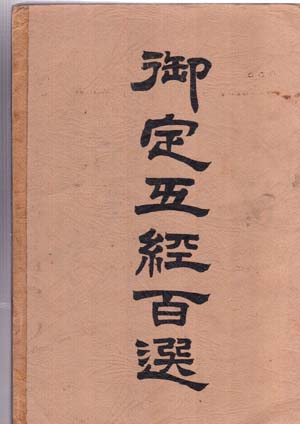 御定五經百選